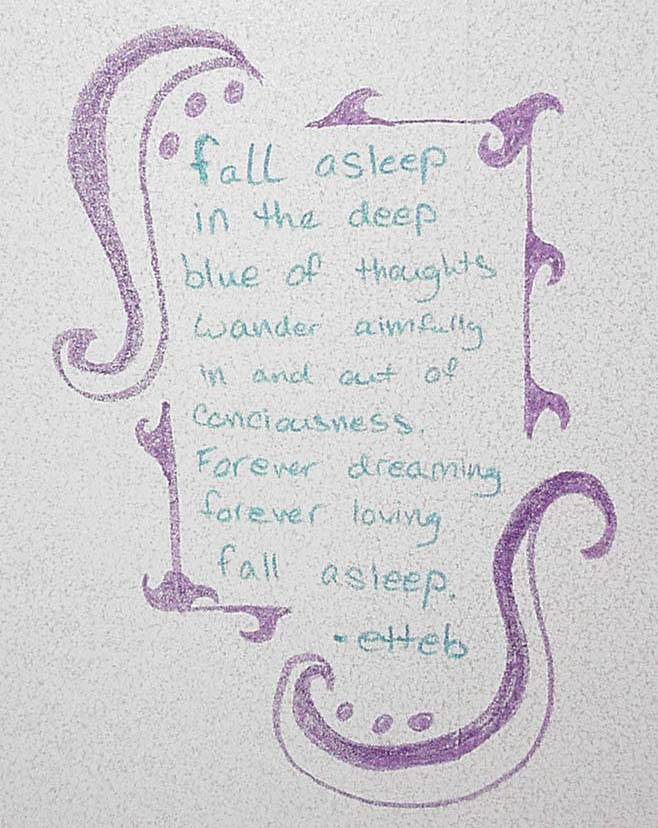 fall asleep
in the deep
blue of thoughts
wander aimfully
in and out of
conciousness.
Forever dreaming
forever loving
fall asleep.
-etteb